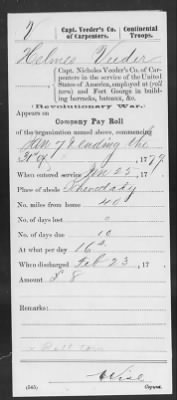 V | Capt. Veeder's Co. of Carpenters. | Continental Troops.
Helmes Veeder
Capt. Nicholas Veeder's Co. of Carpenters
in the service of the United
States of America, employed at
and Fort George in building
barracks, bateaux, &c.
(Revolutionary War.)
Appears on
Company Pay Roll
of the organization named above, commencing
ending the
1779.
When entered service Jan 25, 17
Place of abode
No. miles from home 40
No. of days lost 0
No. of days due 10
At what per day 16
When discharged Feb 23, 17
Amount £ 8
Remarks:
(545)
Copyist.